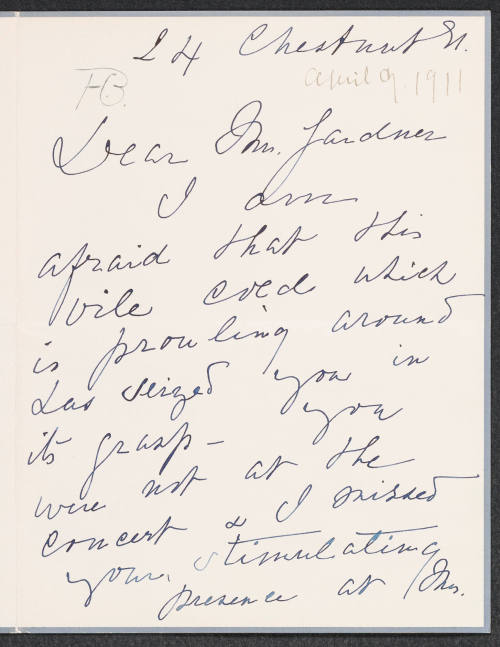 24 Chestnut St.
April 9. 1911
FB.
Dear Mrs. Gardner
I am
afraid that this
vile cold which
is prowling around
has seized you in
its grasp - you
were not at the
concert & I missed
your stimulating
presence at Mrs.